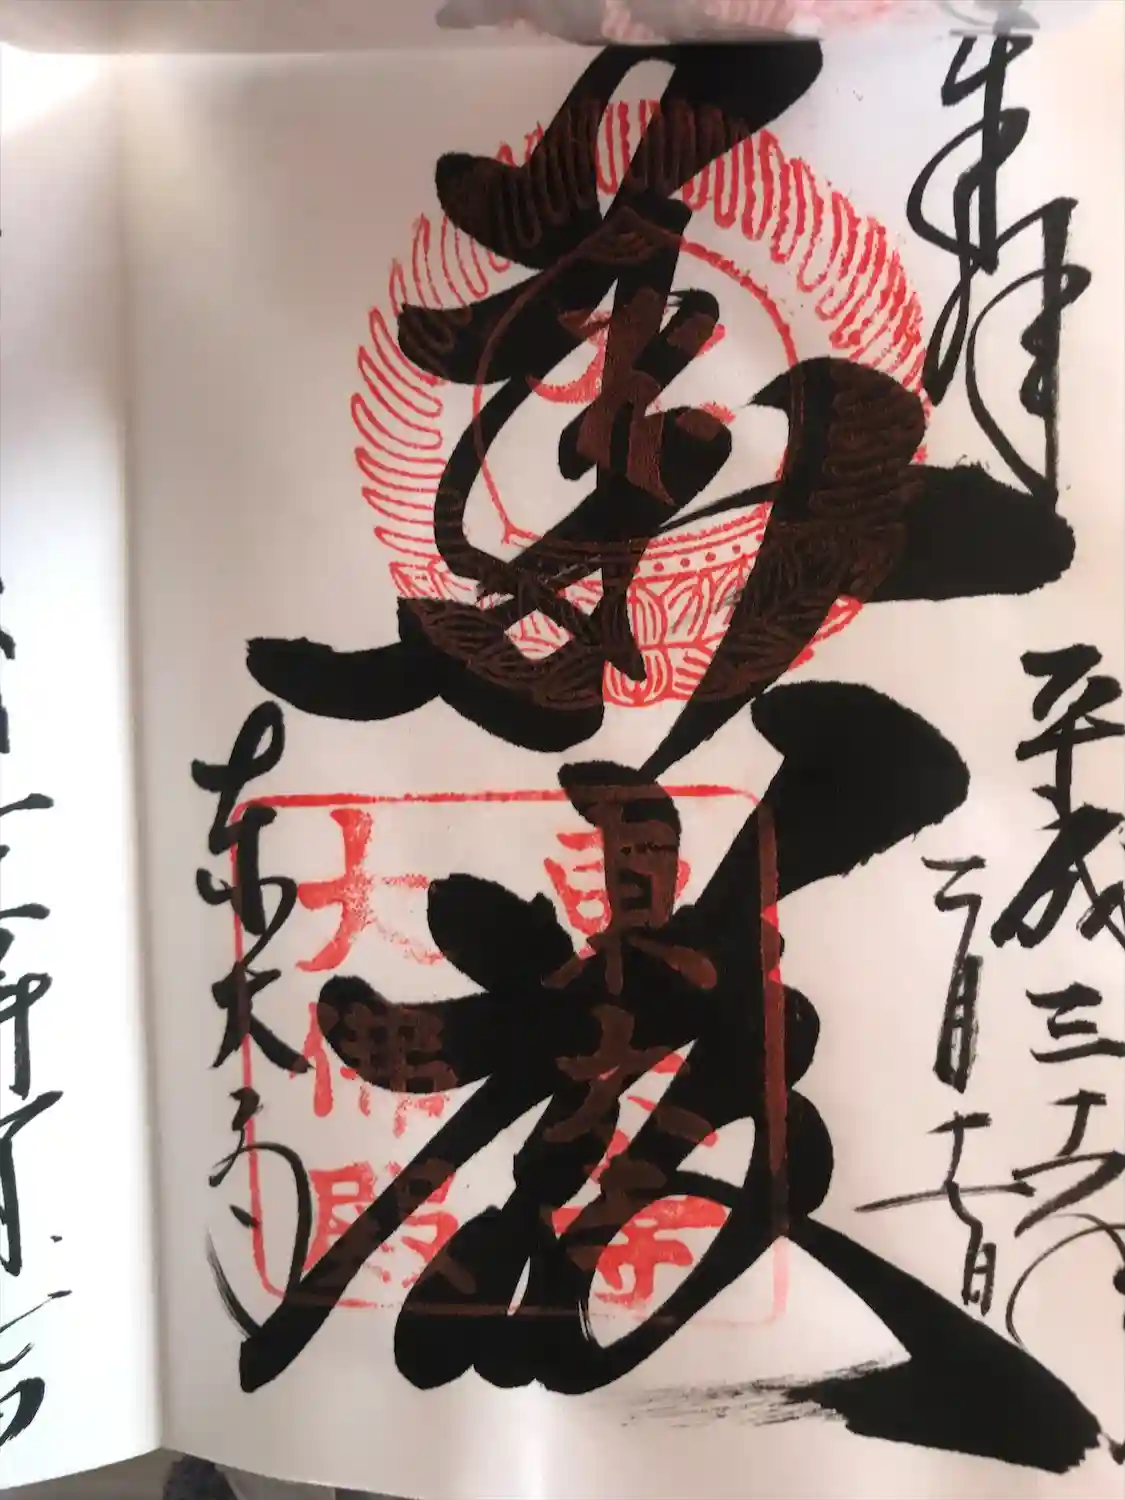 奉拝
平成三十年
二月十七日
華厳
東大寺
東大寺
大佛殿